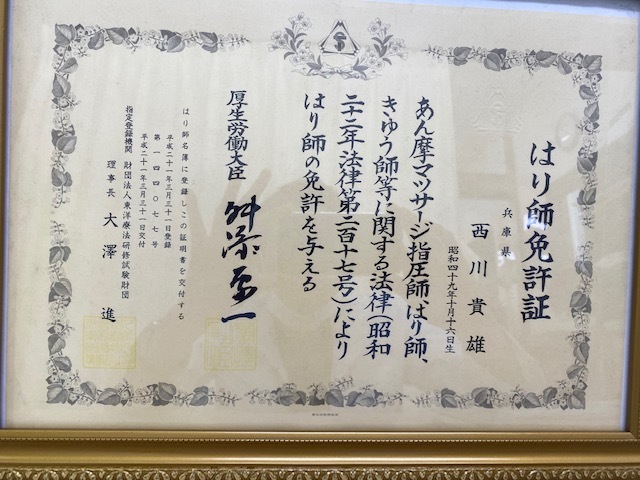 はり師免許証
兵庫県
西川貴雄
昭和四十九年十月十六日生
あん摩マツサージ指圧師、はり師、
きゆう師等に関する法律(昭和
二十二年法律第二百十七号)により
はり師の免許を与える
厚生労働大臣 舛添要一
はり師名簿に登録しこの証明書を交付する
平成二十一年三月三十一日登録
第一四四〇七七号
平成二十一年三月三十一日交付
指定登録機関 財団法人東洋療法研修試験財団
理事長 大澤進